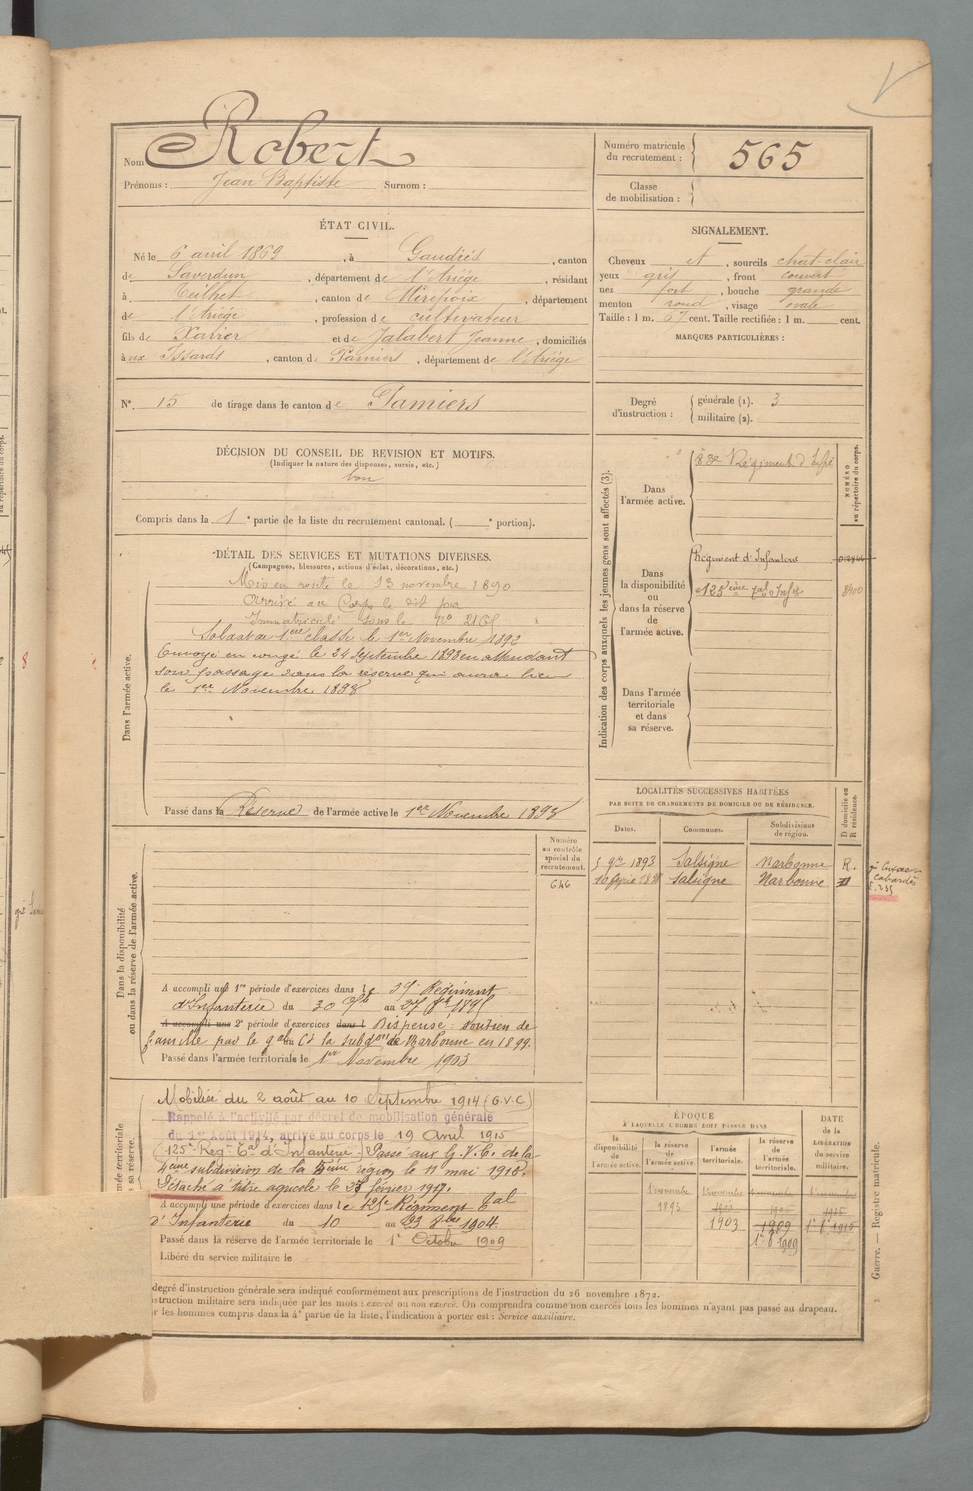 Nom Robert
Prénoms : Jean Baptiste Surnom :
Numéro matricule du recrutement : 565
Classe de mobilisation :
ÉTAT CIVIL.
Né le 6 avril 1869, à Gaudiés, canton
de Saverdun, département de l'Ariège, résidant
à Teilhet, canton de Mirepoix, département
de l'Ariège, profession de cultivateur
fils de Xavier et de Jalabert Jeanne, domiciliés
à ux Issards, canton de Pamiers, département de l'Ariège
SIGNALEMENT.
Cheveux et, sourcils chat clair
yeux gris, front couvert
nez fort, bouche grande
menton rond, visage ovale
Taille : 1 m. 67 cent. Taille rectifiée : 1 m. cent.
MARQUES PARTICULIÈRES :
N° 15 de tirage dans le canton de Pamiers
Degré d'instruction : générale (1). 3
militaire (2).
DÉCISION DU CONSEIL DE REVISION ET MOTIFS.
(Indiquer la nature des dispenses, sursis, etc.)
bon
Compris dans la 1e partie de la liste du recrutement cantonal. ( e portion).
DÉTAIL DES SERVICES ET MUTATIONS DIVERSES.
(Campagnes, blessures, actions d'éclat, décorations, etc.)
Dans l'armée active.
Mis en route le 13 novembre 1890
Arrivé au Corps le dit jour
Immatriculé sous le n°
Soldat de 1ère classe le 1er Novembre 1892
Envoyé en congé le 24 Septembre 1893 en attendant
son passage dans la réserve qui aura lieu
le 1er Novembre 1893
Passé dans la Réserve de l'armée active le 1er Novembre 1893
Indication des corps auxquels les jeunes gens sont affectés (3).
NUMÉRO au répertoire du corps.
Dans l'armée active.
83e Régiment d'Infie
Dans la disponibilité ou dans la réserve de l'armée active.
Régiment d'Infanterie
Dans l'armée territoriale et dans sa réserve.
LOCALITÉS SUCCESSIVES HABITÉES
PAR SUITE DE CHANGEMENTS DE DOMICILE OU DE RÉSIDENCE.
Dates. Communes. Subdivisions de région. D domicile ou R résidence.
5 9bre 1893 Salsigne Narbonne R.
Salsigne Narbonne D
Dans la disponibilité ou dans la réserve de l'armée active.
Numéro au contrôle spécial du recrutement.
646
A accompli une 1re période d'exercices dans le Régiment
d'Infanterie du 30 au
A accompli une 2e période d'exercices dans l Dispensé : soutien de
famille par le gal Ct la subdon de Narbonne en 1899.
Passé dans l'armée territoriale le 1er Novembre 1903
Mobilisé du 2 août au 10 Septembre 1914 (G.V.C)
Rappelé à l'activité par décret de mobilisation générale
du 1er Août 1914, arrivé au corps le 19 Avril 1915
(125e Regt Tal d'Infanterie) Passé aux G.V.C. de la
4eme subdivision de la région le 11 mai 1915.
Détaché à titre agricole le février 1917.
A accompli une période d'exercices dans le 125e Régiment tal
d'Infanterie du 10 au 23 8bre 1904
Passé dans la réserve de l'armée territoriale le 1er Octobre 1909
Libéré du service militaire le
ÉPOQUE
À LAQUELLE L'HOMME DOIT PASSER DANS
DATE de la LIBÉRATION du service militaire.
la disponibilité de l'armée active. la réserve de l'armée active. l'armée territoriale. la réserve de l'armée territoriale.
1 novembre 1893
1903 1909
1er 8 1909
Guerre. — Registre matricule.
degré d'instruction générale sera indiqué conformément aux prescriptions de l'instruction du 26 novembre 1872.
struction militaire sera indiquée par les mots : exercé ou non exercé. On comprendra comme non exercés tous les hommes n'ayant pas passé au drapeau.
r les hommes compris dans la 4e partie de la liste, l'indication à porter est : Service auxiliaire.